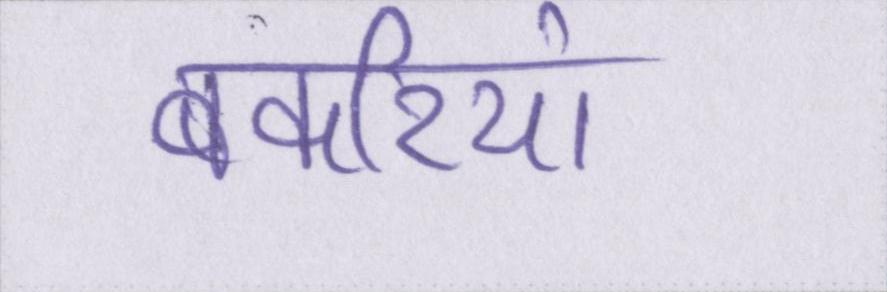 बकरियां